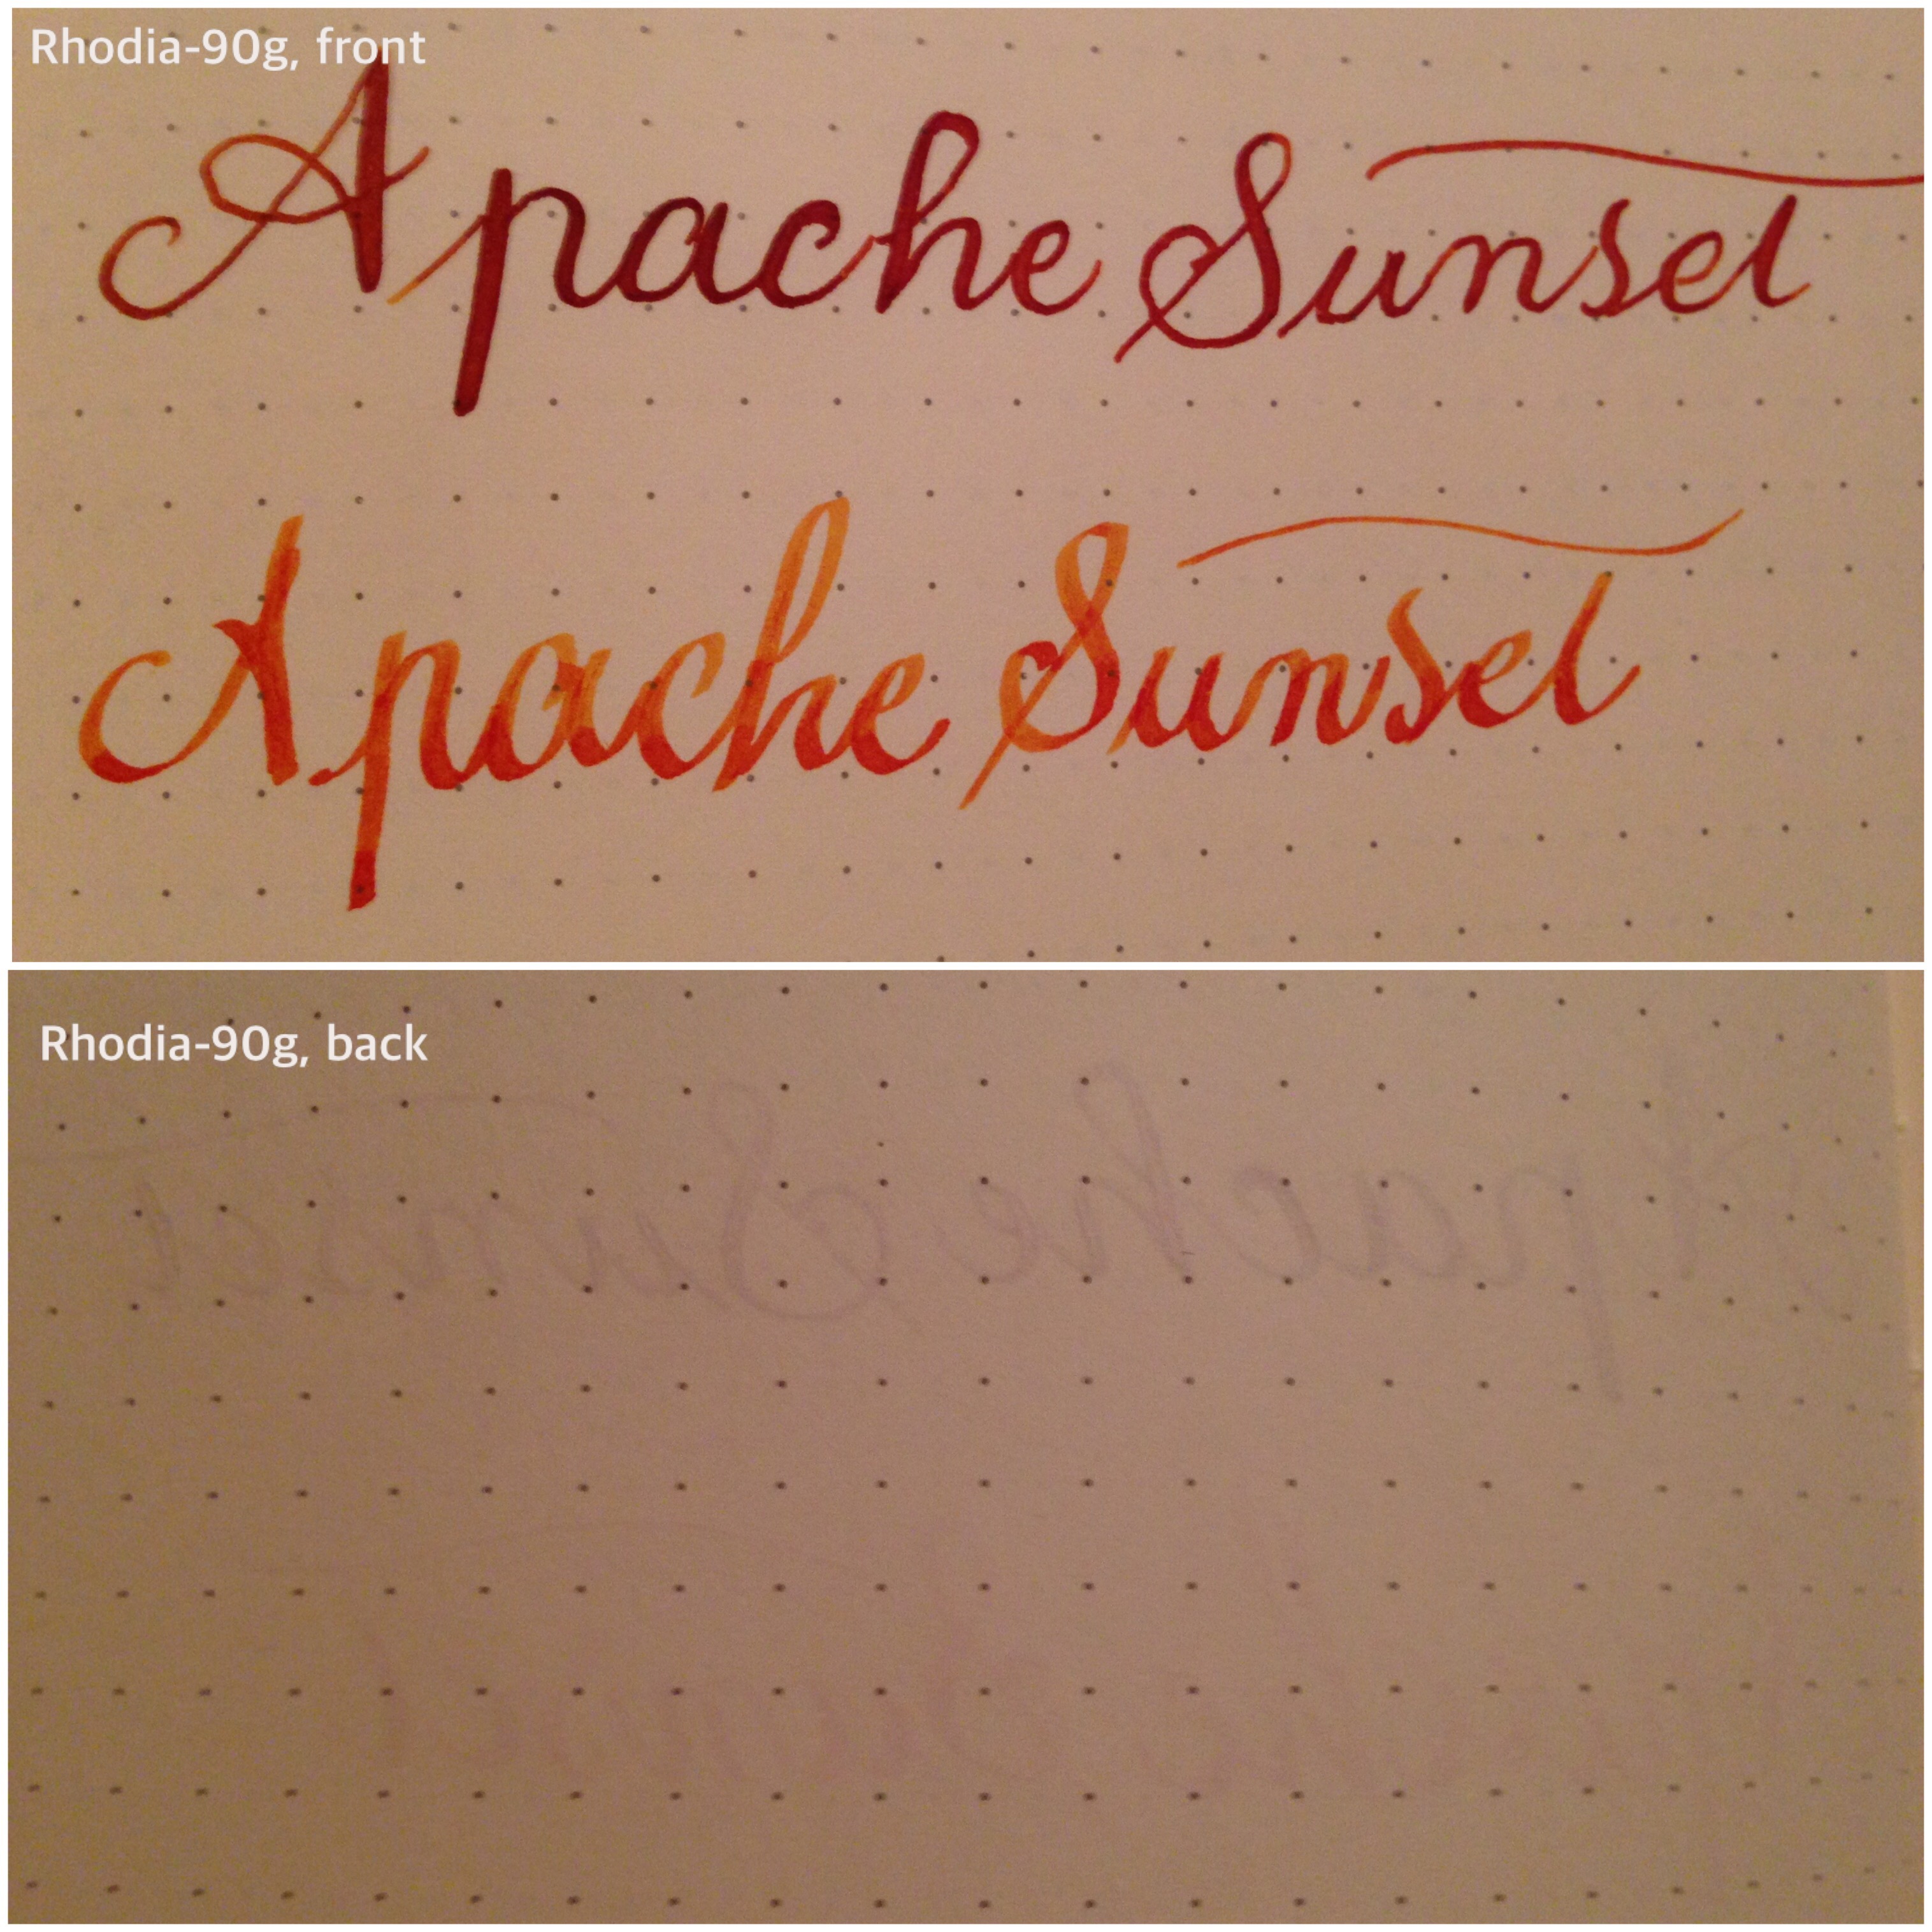 Rhodia-90g, front
Apache Sunset
Apache Sunset
Rhodia-90g, back